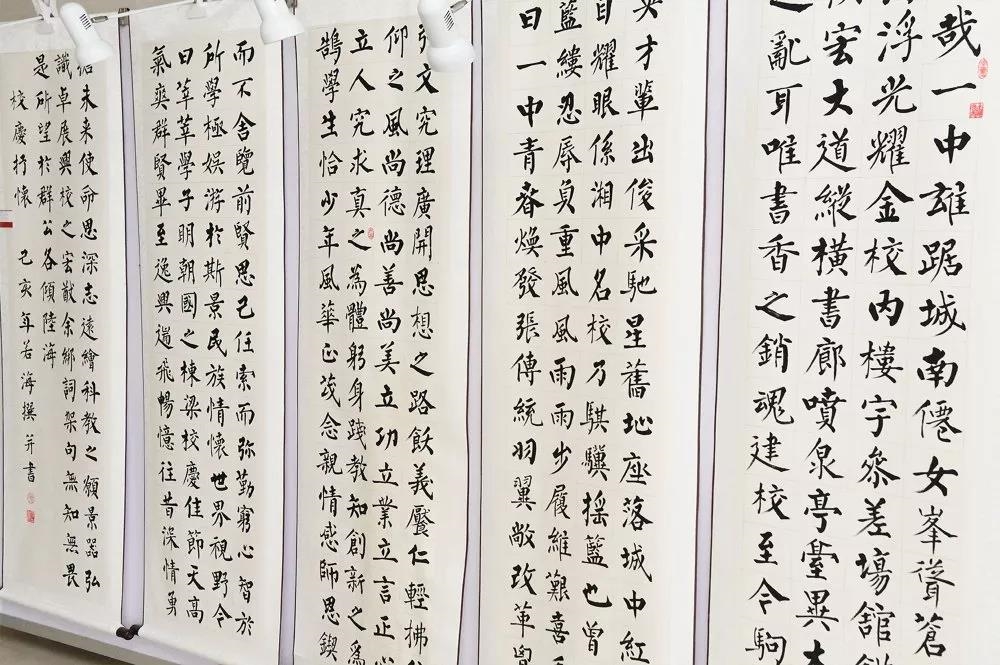 哉一中雄踞城南僊女峯聳蒼
浮光耀金校內樓宇參差場館
宏大道縱橫書廊噴泉亭臺異
亂耳唯書香之銷魂建校至今駒
英才輩出俊采馳星舊址座落城中紅
目耀眼係湘中名校乃騏驥搖籃也曾
藍縷忍辱負重風風雨雨步履維艱喜
日一中青春煥發張傳統羽翼敞改革
文究理廣開思想之路飫義饜仁輕拂
仰之風尚德尚善尚美立功立業立言正心
立人究求真之為體躬身踐教知創新之為
鵠學生恰少年風華正茂念親情感師恩鍥
而不舍覽前賢思己任索而弥勤窮心智於
所學極娛游於斯景民族情懷世界視野今
日莘莘學子明朝國之棟梁校慶佳節天高
氣爽群賢畢至逸興遄飛暢憶往昔深情勇
未来使命思深志遠繪科教之願景器弘
識卓展興校之宏猷余鄉詞架句無知無畏
是所望於群公各傾陸海
校慶抒懷 己亥年若海撰并書